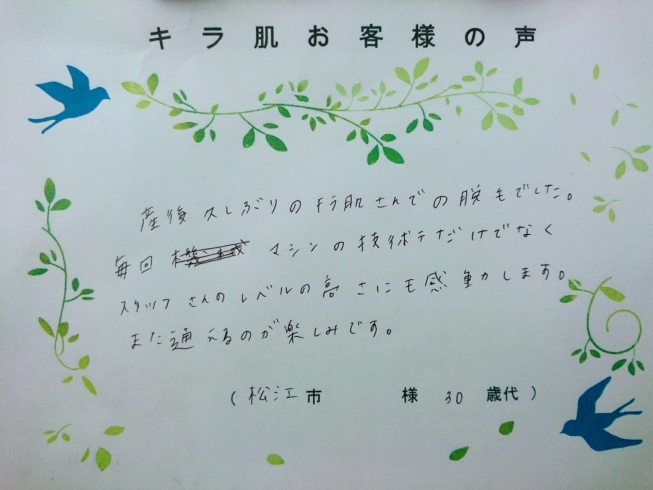 キラ肌お客様の声
産後久しぶりのキラ肌さんでの脱毛でした。
毎回 マシンの技術だけでなく
スタッフさんのレベルの高さにも感動します。
また通えるのが楽しみです。
(松江市 様 30 歳代)